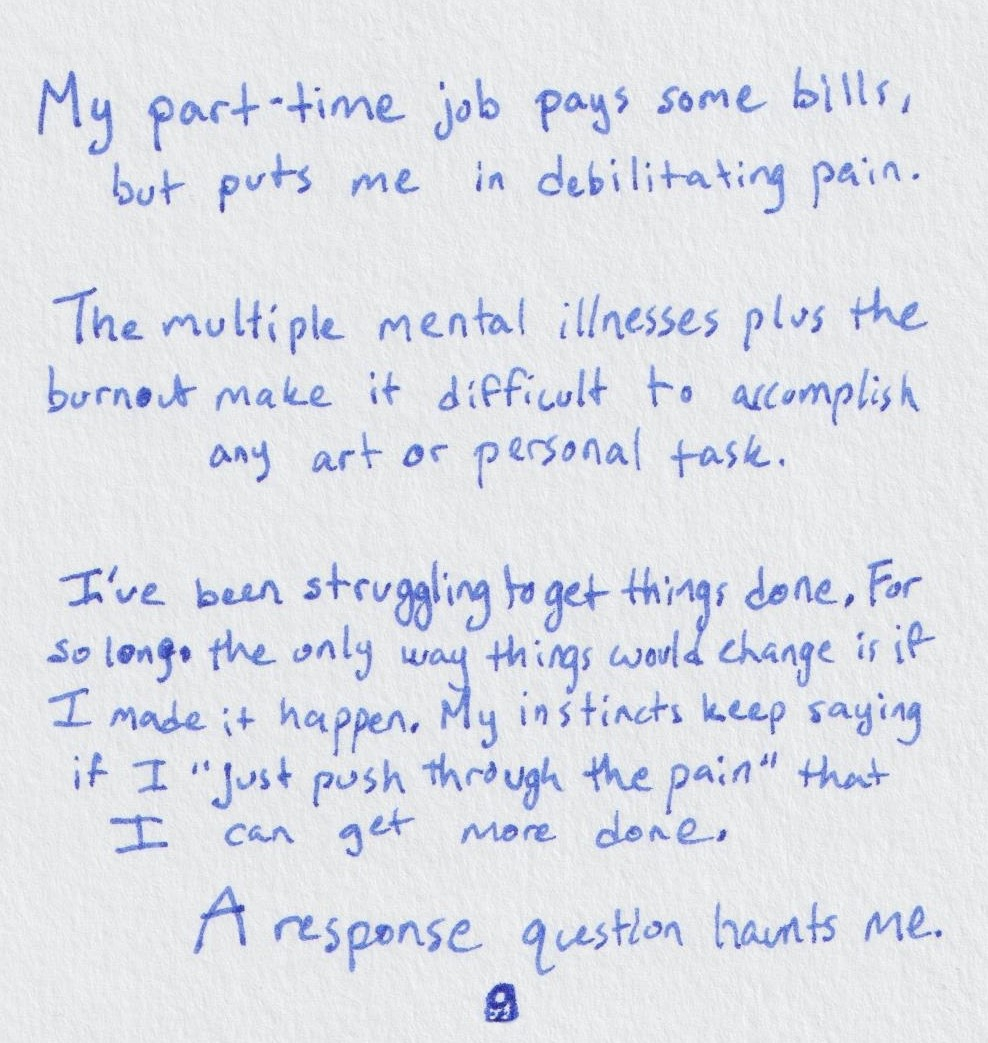 My part-time job pays some bills,
but puts me in debilitating pain.
The multiple mental illnesses plus the
burnout make it difficult to accomplish
any art or personal task.
I've been struggling to get things done. For
so long, the only way things would change is if
I made it happen. My instincts keep saying
if I "just push through the pain" that
I can get more done.
A response question haunts me.
9